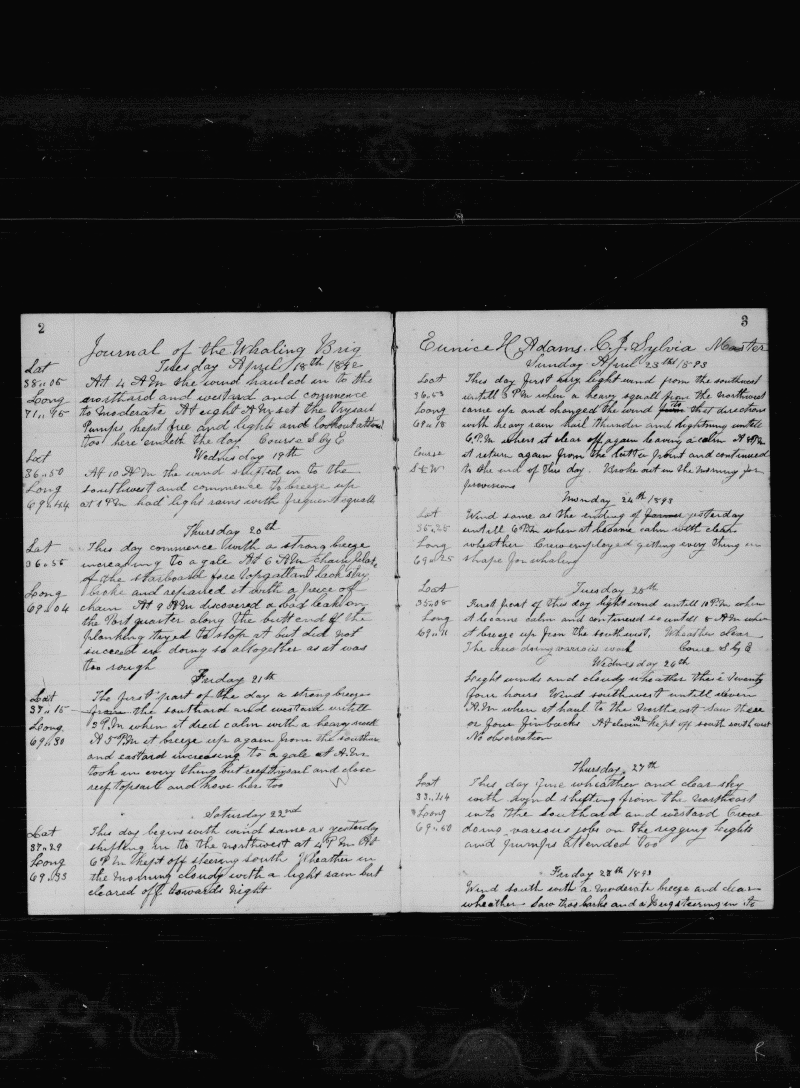 2
Journal of the Whaling Brig
Tuesday April 18th 1892
Lat
38,,05
Long
71,,95
At 4 A.M. the wind hauled in to the
northard and westard and commence
to moderate At eight A.M. set the trysail
Pumps kept free and lights and lookout attend
too here endeth the day Course S by E
Wednesday 19th
Lat
36,,50
Long
69,,44
At 10 A.M. the wind shifted in to the
southwest and commence to breeze up
at 1 P.M. had light rains with frequent squalls
Thursday 20th
Lat
36,,55
Long
69,,04
This day commence with a strong breeze
increasing to a gale At 6 A.M. chain
of the starboard fore topgallant back stay
broke and repaired it with a piece of
chain At 9 A.M. discovered a bad leak in
the Port quarter along the butt end of the
planking tryed to stop it but did not
succeed in doing so altogether as it was
too rough
Friday 21th
Lat
37,,15
Long
69,,30
The first part of the day a strong breeze
from the southard and westard untill
3 P.M. when it died calm with a heavy
A 5 P.M. it breeze up again from the southar
and eastard increasing to a gale at A.M.
took in every thing but reef trysail and close
reef topsail and hove here too
Saturday 22nd
Lat
37,,29
Long
69,,33
This day begins with wind same as yesterday
shifting in to the northwest at 4 P.M. At
6 P.M. kept off steering south Wheather in
the morning cloudy with a light rain but
cleared off towards night
3
Eunice H Adams. C. J. Sylvia Master
Sunday April 23rd 1893
Lat
36,,53
Long
69,,18
Course
S & W
This day first very light wind from the southwest
untill 3 P.M. when a heavy squall from the northwest
came up and changed the wind from that direction
with heavy rain hail thunder and lightning untill
6. P.M. when it clear off again leaving a calm At
it return again from the latter point and continued
to the end of this day. Broke out in the morning for
provisions
Monday 24th 1893
Lat
35,,25
Long
69,,25
Wind same as the ending of yesterday
untill 6 P.M. when it became calm with clear
wheather Crew employed getting every thing in
shape for whaling
Tuesday 25th
Lat
35,,08
Long
69,,11
First part of this day light wind untill 10 P.M. when
it became calm and continued so untill 8 A.M. when
it breeze up from the southwest, Wheather clear
The crew doing varrois work Course S by E
Wednesday 26th
Light winds and cloudy wheather these twenty
four hours Wind southwest untill eleven
A.M. when it haul to the northeast Saw three
or four finbacks At eleven A.M. kept off south south west
No observation
Thursday, 27th
Lat
33,,44
Long
69,,50
This day fine wheather and clear sky
with wind shifting from the northeast
into the southard and westard Crew
doing variesus jobs on the rigging Lights
and pumps attended too
Friday 28th 1893
Wind south with a moderate breeze and clear
wheather Saw two barks and a brig steering in to